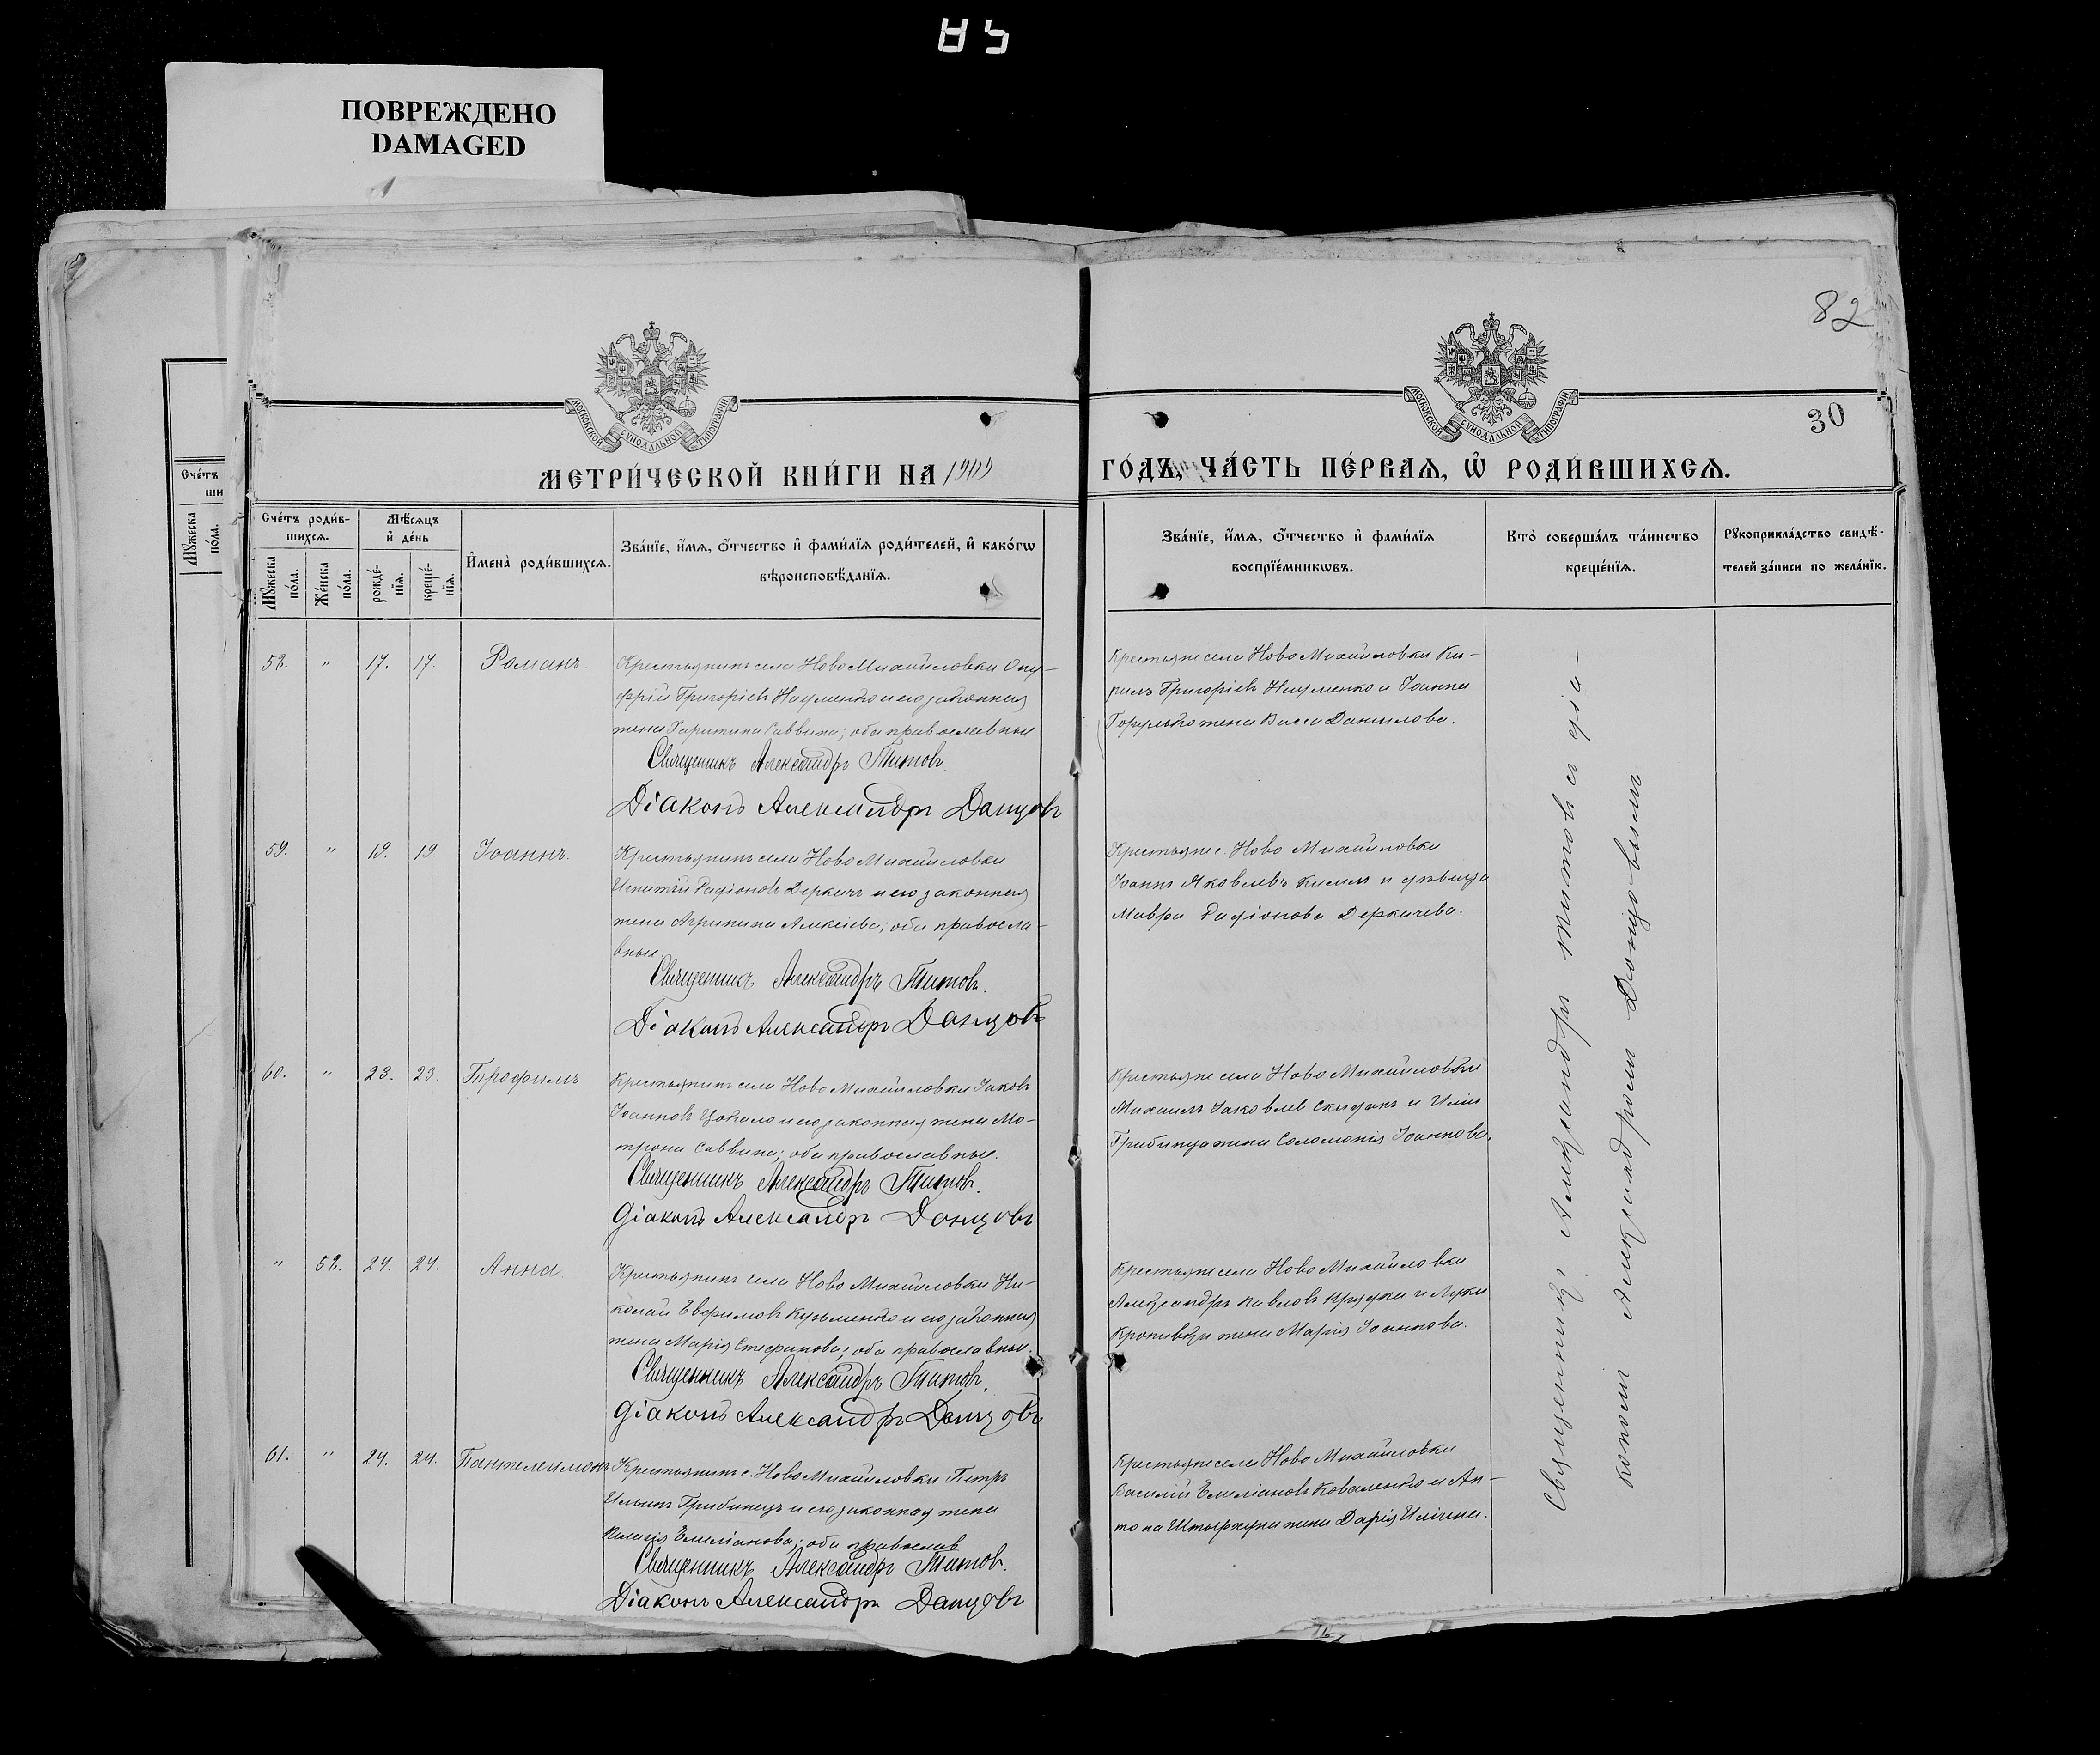 ПОВРЕЖДЕНО
DAMAGED
82
30
МОСКОВСКОЙ СѴНОДАЛЬНОЙ ТИПОГРАФІИ
МОСКОВСКОЙ СѴНОДАЛЬНОЙ ТИПОГРАФІИ
МЕТРИ́ЧЕСКОЙ КНИ́ГИ НА
ГО́ДЪ, ЧА́СТЬ ПЕ́РВАѦ, Ѡ҆ РОДИ́ВШИХСѦ.
Сче́тъ
ши
Мꙋ́жеска
по́ла.
Сче́тъ роди́в-
шихсѧ.
Мꙋ́жеска
по́ла.
Же́нска
по́ла.
Мѣ́сѧцъ
и҆ де́нь
рожде́-
нїѧ.
креще́-
нїѧ.
И҆мена̀ роди́вшихсѧ.
Зва́нїе, и҆́мѧ, ѻ҆́тчество и҆ фами́лїѧ роди́телей, и҆ како́гѡ
вѣроисповѣ́данїѧ.
Зва́нїе, и҆́мѧ, ѻ҆́тчество и҆ фами́лїѧ
воспрїе́мникѡвъ.
Кто̀ соверша́лъ та́инство
креще́нїѧ.
Рꙋкоприкла́дство свидѣ́-
телей за́писи по жела́нїю.
58. " 17. 17. Романъ
Крестьянинъ села НовоМихайловки Ону-
фрій Григоріевъ Науменко и его законная
жена Харитина Саввина; оба православные.
Священникъ Александръ Титовъ.
Діаконъ Александръ Данцовъ
Крестьяне села НовоМихайловки Ки-
рилъ Григоріевъ Науменко и Іоанна
жена Васса Данилова.
59. " 19. 19. Іоаннъ.
Крестьянинъ села НовоМихайловки
Игнатій Радіоновъ Деркачъ и его законная
жена Агрипина Алексіева; оба правосла-
вные.
Священникъ Александръ Титовъ.
Діаконъ Александръ Данцовъ
Крестьяне с. Ново Михайловки
Іоаннъ Яковлевъ и дѣвица
Мавра Радіонова Деркачева.
60. " 23. 23. Трофимъ
Крестьянинъ села НовоМихайловки Іаковъ
Іоанновъ Цокало и его законная жена Мо-
трона Саввина; оба православные.
Священникъ Александръ Титовъ.
Діаконъ Александръ Данцовъ
Крестьяне села НовоМихайловки
Михаилъ Іаковлев Скиданъ и Иліи
Грибинца жена Соломонія Іоаннова.
" 58. 24. 24. Анна.
Крестьянинъ села НовоМихайловки Ни-
колай Евфимовъ Кузьменко и его законная
жена Марія Стефанова; оба православные.
Священникъ Александръ Титовъ.
Діаконъ Александръ Данцовъ
Крестьяне села НовоМихайловки
Александръ Павловъ и Луки
жена Марія Іоаннова.
61. " 24. 24. Пантелеимонъ
Крестьянинъ с. НовоМихайловки Петръ
Ильинъ Грибинецъ и его законная жена
Пелагія Емиліанова; оба православ
Священникъ Александръ Титовъ.
Діаконъ Александръ Данцовъ
Крестьяне села НовоМихайловки
Василій Емиліановъ Коваленко и Ан-
тона жена Дарія Илічина.
Священникъ Александръ Титовъ съ діа-
кономъ Александромъ Донцовымъ